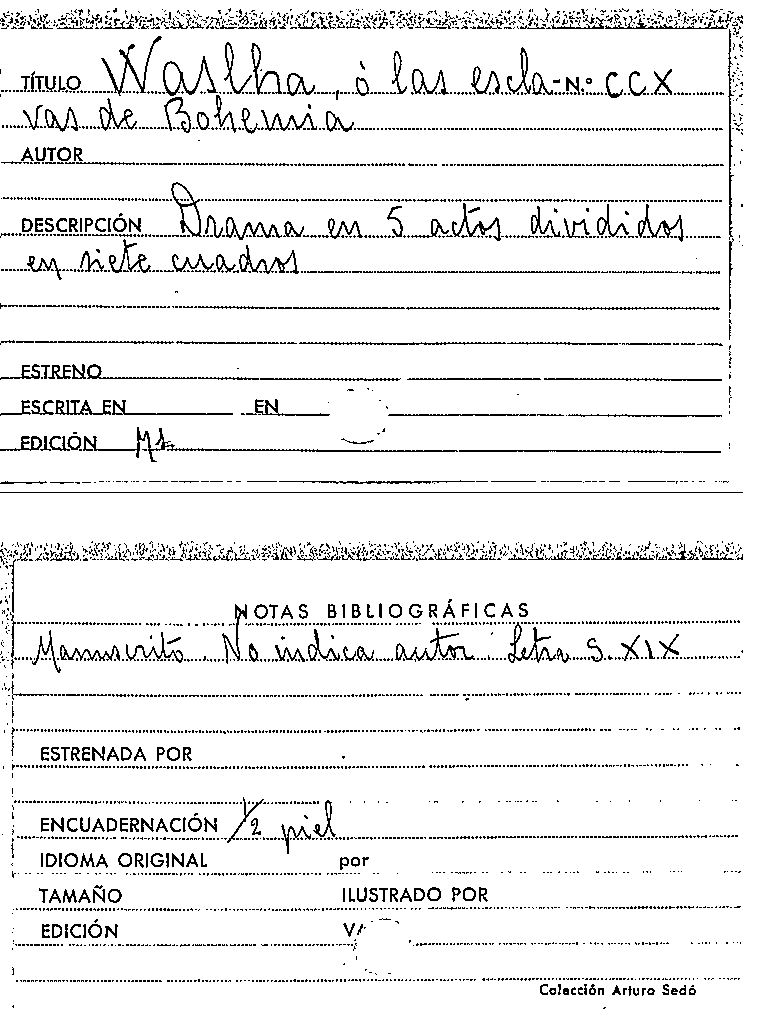 TÍTULO Waslha, ó las escla- N.º CCX
vas de Bohemia
AUTOR
DESCRIPCIÓN Drama en 5 actos divididos
en siete cuadros
ESTRENO
ESCRITA EN EN
EDICIÓN Ms.
NOTAS BIBLIOGRÁFICAS
Manuscrito. No indica autor. Letra S. XIX
ESTRENADA POR
ENCUADERNACIÓN 1/2 piel
IDIOMA ORIGINAL por
TAMAÑO ILUSTRADO POR
EDICIÓN
Colección Arturo Sedó